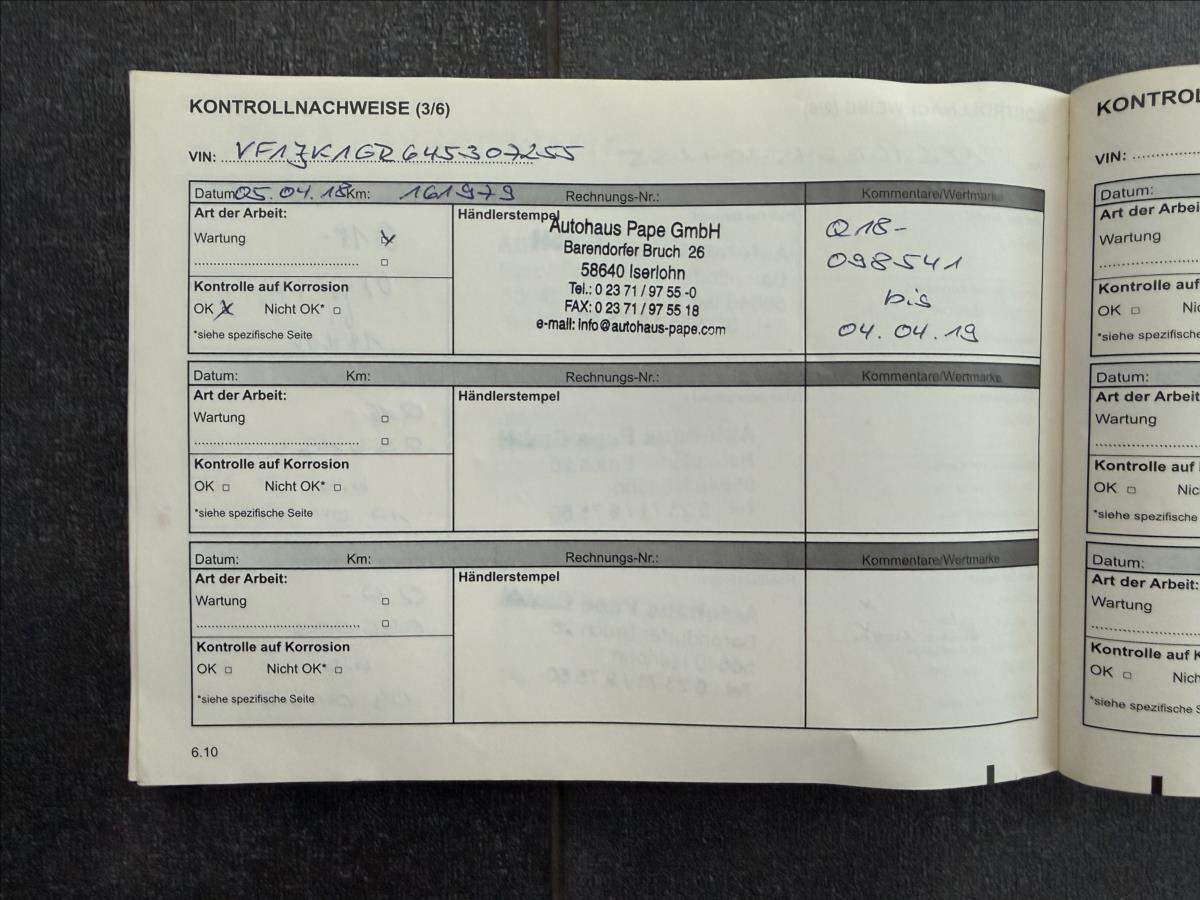 KONTROLLNACHWEISE (3/6)
VIN: VF1JK1GR645307255
Datum: 05.04.18 Km: 161979 Rechnungs-Nr.: Kommentare/Wertmarke
Art der Arbeit:
Wartung
Kontrolle auf Korrosion
OK Nicht OK*
*siehe spezifische Seite
Händlerstempel
Autohaus Pape GmbH
Barendorfer Bruch 26
58640 Iserlohn
Tel.: 0 23 71 / 97 55 -0
FAX: 0 23 71 / 97 55 18
e-mail: info@autohaus-pape.com
Q18-
098541
bis
04.04.19
Datum: Km: Rechnungs-Nr.: Kommentare/Wertmarke
Art der Arbeit:
Wartung
Kontrolle auf Korrosion
OK Nicht OK*
*siehe spezifische Seite
Händlerstempel
Datum: Km: Rechnungs-Nr.: Kommentare/Wertmarke
Art der Arbeit:
Wartung
Kontrolle auf Korrosion
OK Nicht OK*
*siehe spezifische Seite
Händlerstempel
6.10
KONTROL
VIN:
Datum:
Art der Arbei
Wartung
Kontrolle auf
OK Ni
*siehe spezifische
Datum:
Art der Arbeit
Wartung
Kontrolle auf
OK Nic
*siehe spezifische
Datum:
Art der Arbeit:
Wartung
Kontrolle auf K
OK Nich
*siehe spezifische S